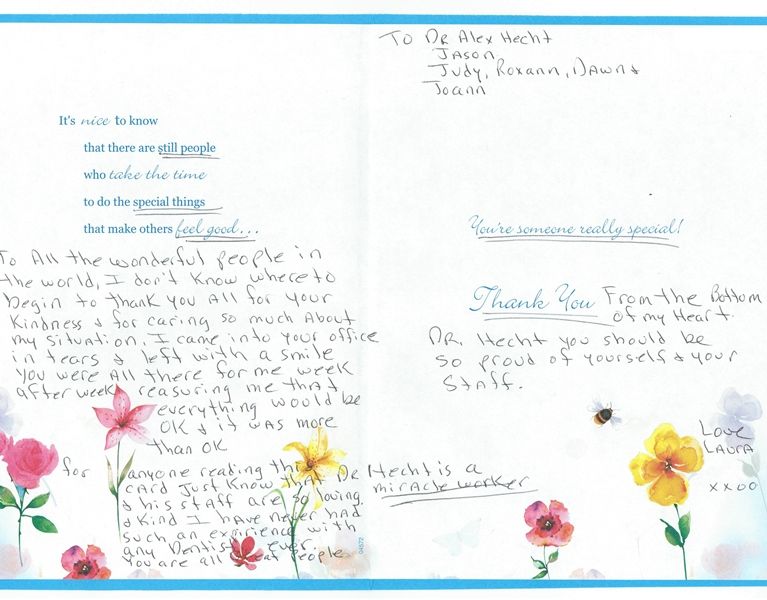 It's nice to know
that there are still people
who take the time
to do the special things
that make others feel good...
To All the wonderful people in
the world, I don't know where to
begin to thank you All for your
Kindness & for caring so much About
my situation. I came into your office
in tears & left with a smile
You were All there for me week
after week reasuring me that
everything would be
OK & it was more
than OK
for anyone reading this
CARD Just Know that Dr Hecht is a
miracle worker
& his staff are so loving
& Kind I have never had
such an exprience with
any Dentist ever.
You are all great People
04572
To Dr Alex Hecht
Jason
Judy, Roxann, Dawn &
Joann
You're someone really special!
Thank You From the Bottom
of my Heart.
DR. Hecht you should be
so proud of yourself & your
Staff.
Love
LAURA
xxoo